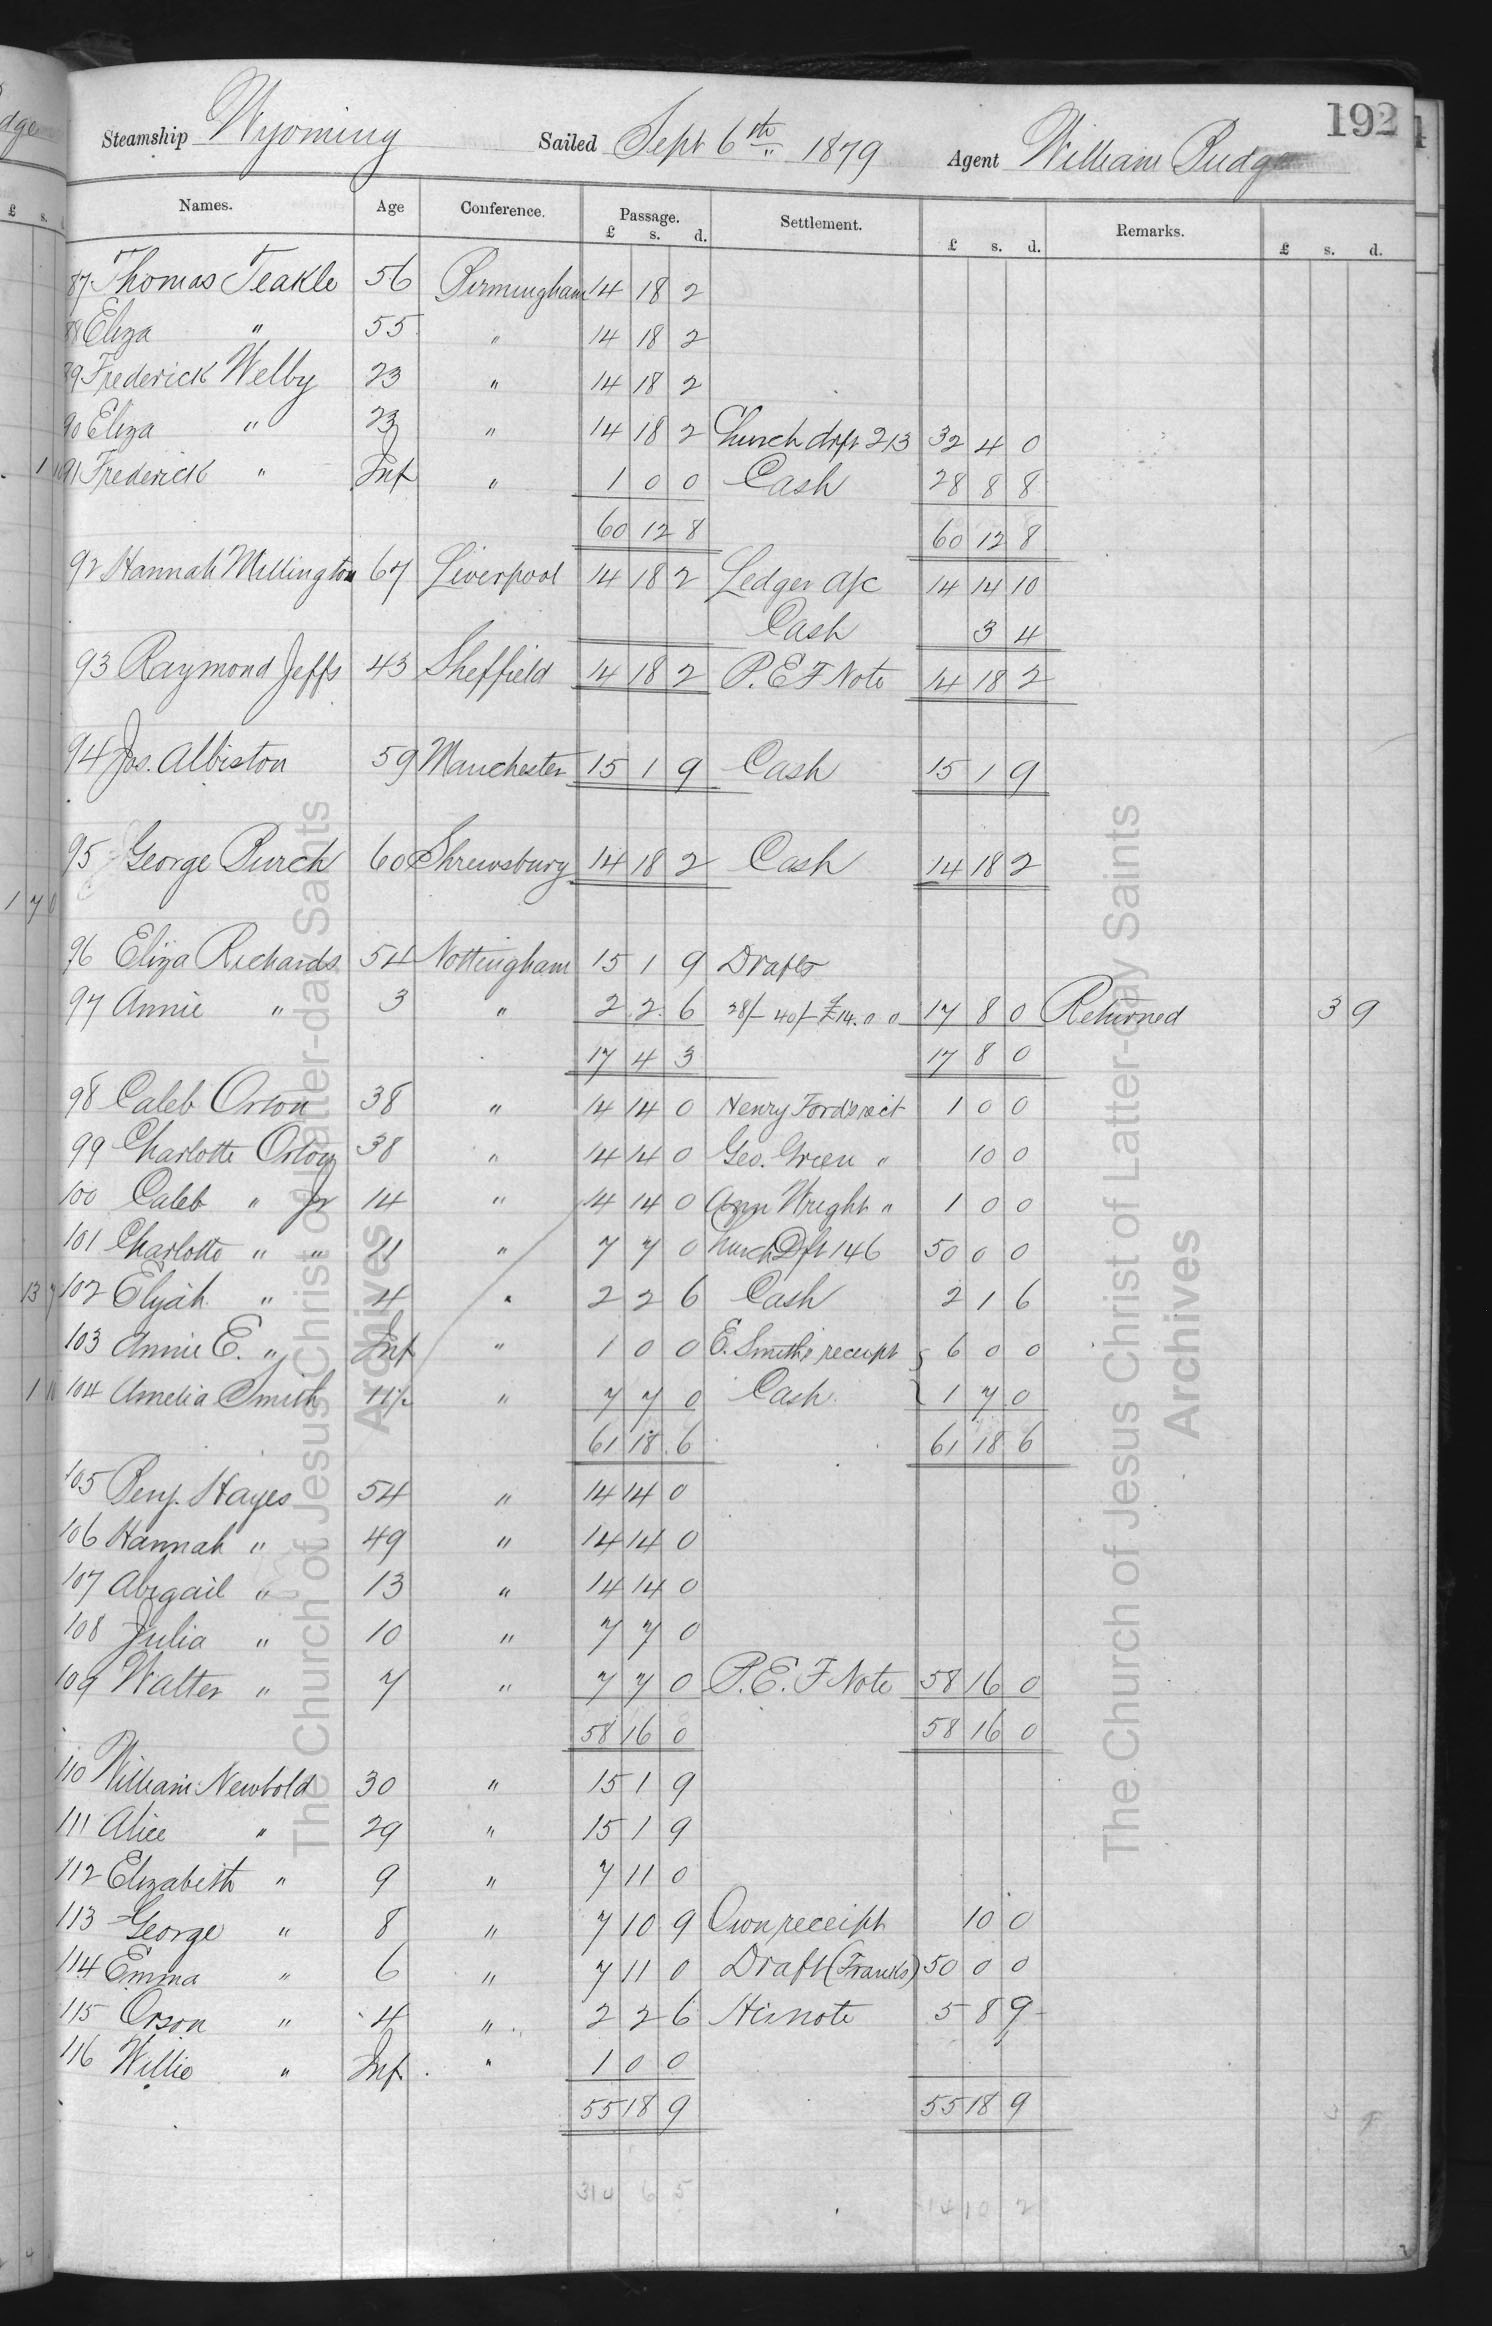 192
Steamship Wyoming Sailed Sept 6th 1879 Agent William Budge
Names. Age Conference. Passage. Settlement. Remarks.
£ s. d. £ s. d. £ s. d.
87 Thomas Teakle 56 Birmingham 14 18 2
88 Eliza " 55 " 14 18 2
89 Frederick Welby 23 " 14 18 2
90 Eliza " 23 " 14 18 2 Church drft 213 32 4 0
91 Frederick " Inf " 1 0 0 Cash 28 8 8
60 12 8 60 12 8
92 Hannah Millington 67 Liverpool 14 18 2 Ledger a/c 14 14 10
Cash 3 4
93 Raymond Jeffs 43 Sheffield 14 18 2 P.E F Note 14 18 2
94 Jos. Albiston 59 Manchester 15 1 9 Cash 15 1 9
95 George Burch 60 Shrewsbury 14 18 2 Cash 14 18 2
96 Eliza Richards 54 Nottingham 15 1 9 Drafts
97 Annie " 3 " 2 2 6 28/- 40/- £14.0 0 17 8 0 Returned 3 9
17 4 3 17 8 0
98 Caleb Orton 38 " 14 14 0 Henry Ford's rect 1 0 0
99 Charlotte Orton 38 " 14 14 0 Geo. Green " 10 0
100 Caleb " Jr 14 " 14 14 0 Ann Wright " 1 0 0
101 Charlotte " " 11 " 7 7 0 Church Dft 146 50 0 0
102 Elijah " 4 " 2 2 6 Cash 2 1 6
103 Annie E. " Inf " 1 0 0 E. Smith's receipt 6 0 0
104 Amelia Smith 11½ " 7 7 0 Cash 1 7 0
61 18 6 61 18 6
105 Benj. Hayes 54 " 14 14 0
106 Hannah " 49 " 14 14 0
107 Abigail " 13 " 14 14 0
108 Julia " 10 " 7 7 0
109 Walter " 7 " 7 7 0 P.E. F Note 58 16 0
58 16 0 58 16 0
110 William Newbold 30 " 15 1 9
111 Alice " 29 " 15 1 9
112 Elizabeth " 9 " 7 11 0
113 George " 8 " 7 10 9 Own receipt 10 0
114 Emma " 6 " 7 11 0 Draft (Franks) 50 0 0
115 Orson " 4 " 2 2 6 His note 5 8 9
116 Willie " Inf " 1 0 0
55 18 9 55 18 9
314 6 5
The Church of Jesus Christ of Latter-day Saints
Archives
The Church of Jesus Christ of Latter-day Saints
Archives